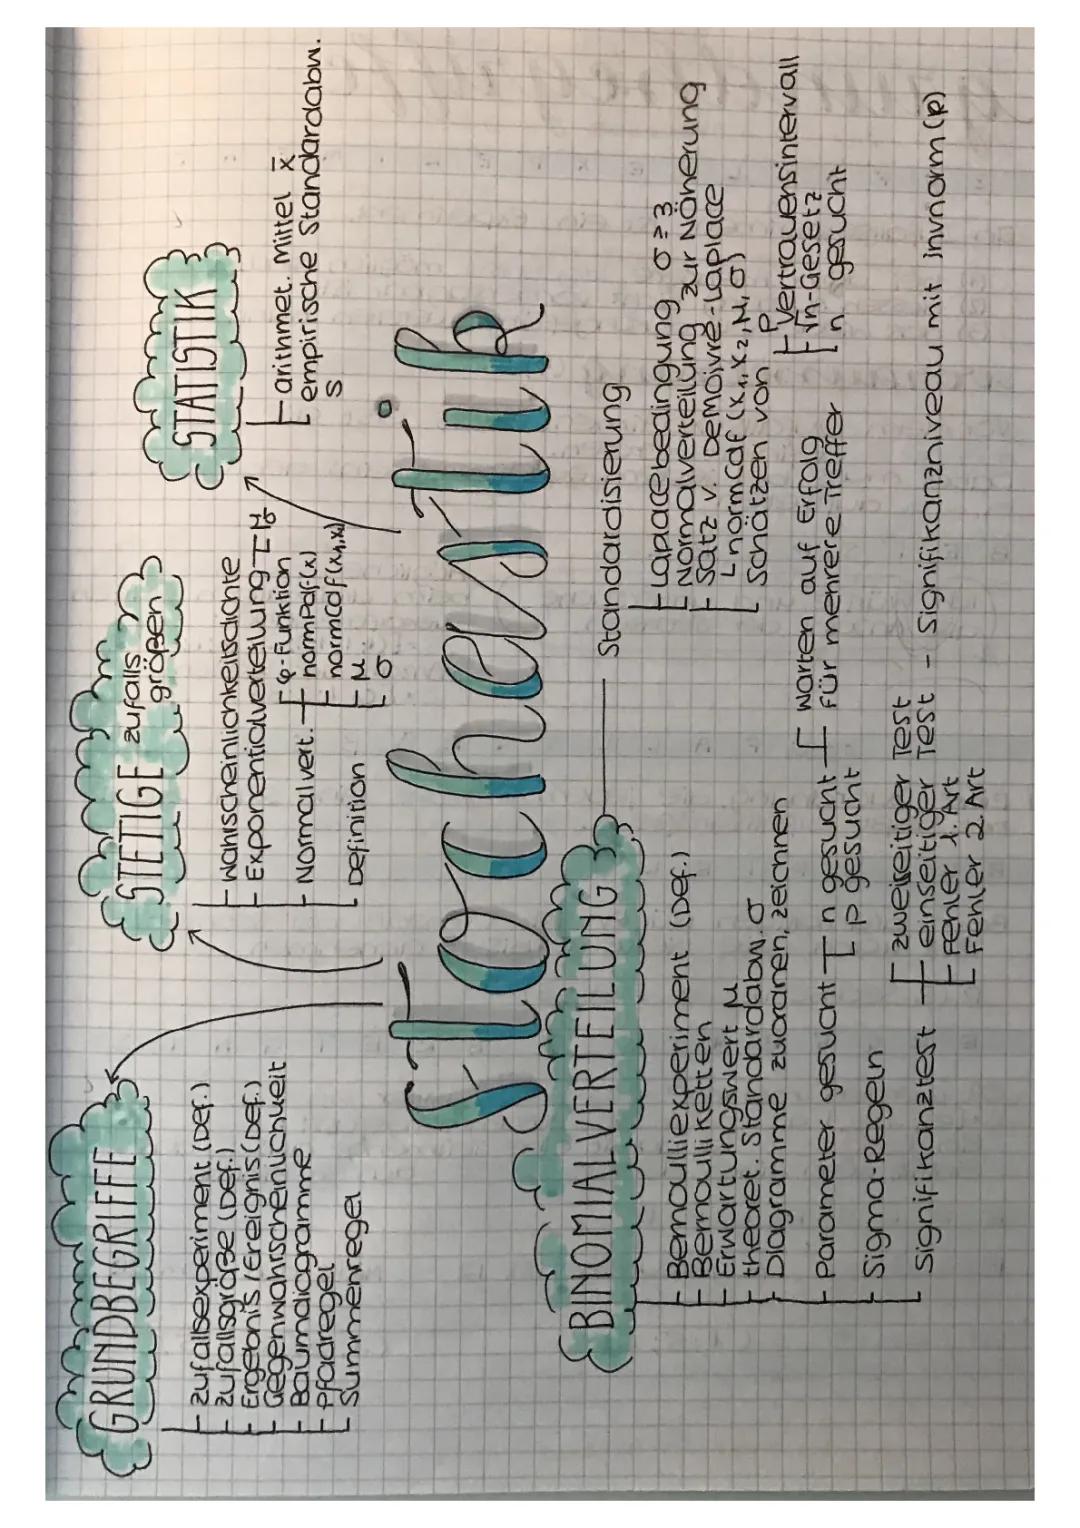 Stochastik
GRUNDBEGRIFFE
Zufallsexperiment (Def.)
Zufallsgröße (Def.)
Ergebnis / Ereignis (Def.)
Gegenwahrscheinlichkeit
Baumdiagramme
Pfadregel
Summenregel
STETIGE zufalls
größen
Wahrscheinlichkeitsdichte
Exponentialverteilung
Normalvert.
φ-Funktion
normPdf(x)
normcdf(x₁,x₂)
μ
σ
Definition
STATISTIK
arithmet. Mittel x̄
empirische Standardabw.
s
BINOMIALVERTEILUNG
Bernoulliexperiment (Def.)
Bernoulli Ketten
Erwartungswert μ
theoret. Standardabw. σ
Diagramme zuordnen, zeichnen
Parameter gesucht
n gesucht
p gesucht
Warten auf Erfolg
für mehrere Treffer
Sigma-Regeln
Signifikanztest
zweiseitiger Test
einseitiger Test - Signifikanzniveau mit invnorm(p)
Fehler 1. Art
Fehler 2. Art
Standardisierung
Laplacebedingung σ ≥ 3
Normalverteilung zur Näherung
Satz v. Demoivre-Laplace
normcdf (x₁, x₂, μ, σ)
Schätzen von p
Vertrauensintervall
√n-Gesetz
n gesucht